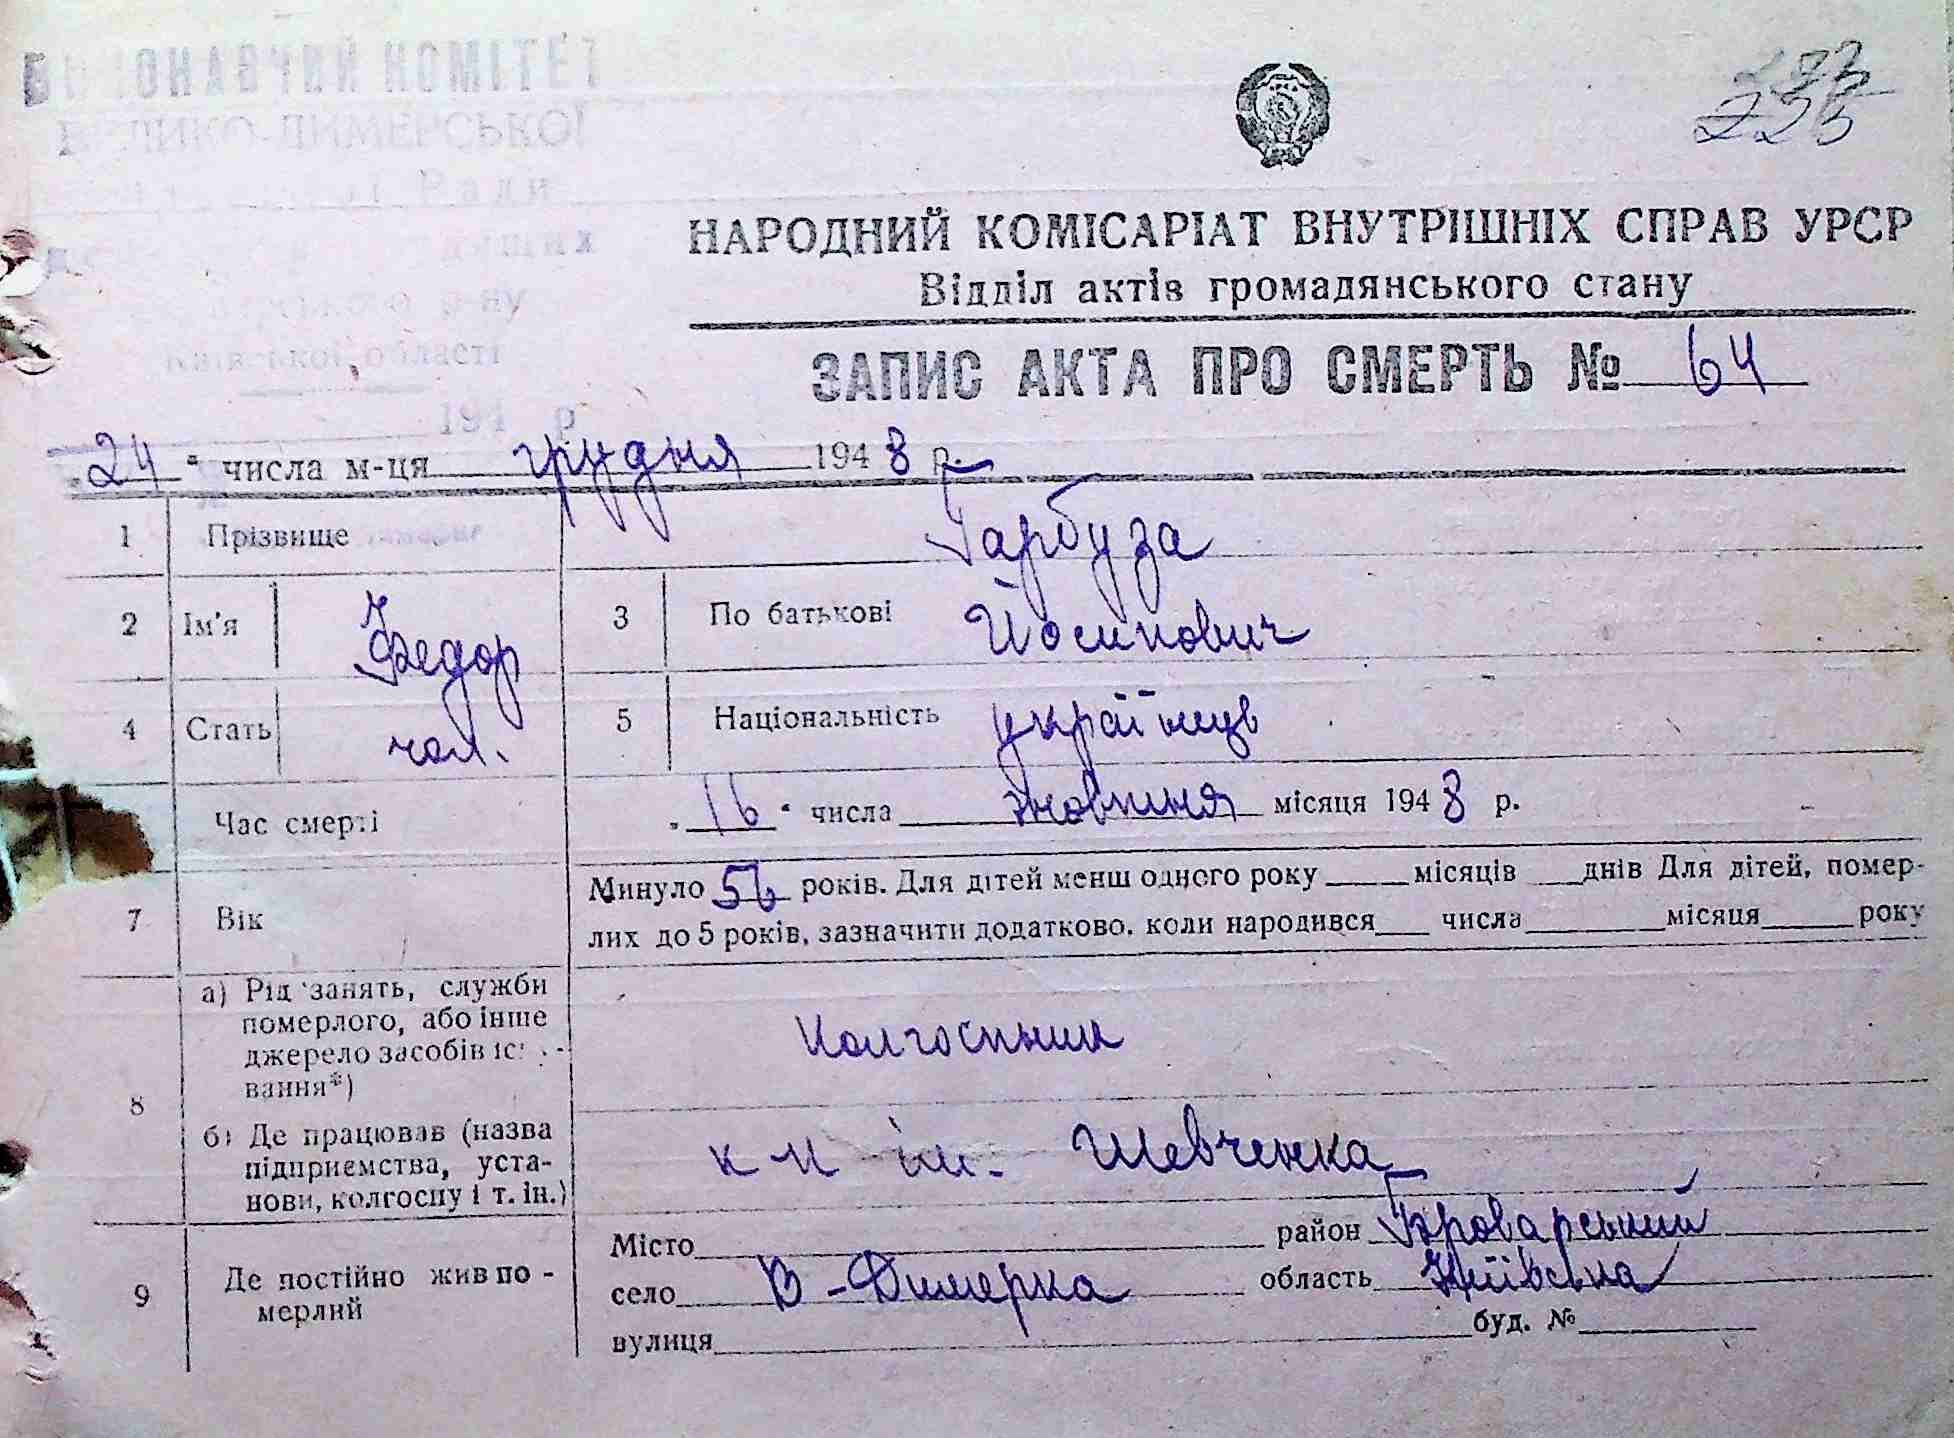 ВИКОНАВЧИЙ КОМІТЕТ
ВЕЛИКО-ДИМЕРСЬКОЇ
Ради
р-ну
Київської області
194 р
225
НАРОДНИЙ КОМІСАРІАТ ВНУТРІШНІХ СПРАВ УРСР
Відділ актів громадянського стану
ЗАПИС АКТА ПРО СМЕРТЬ № 64
"24" числа м-ця грудня 1948 р.
1 Прізвище Гарбуза
2 Ім'я Федор 3 По батькові Йосипович
4 Стать чол. 5 Національність українець
Час смерті "16" числа жовтня місяця 1948 р.
7 Вік Минуло 56 років. Для дітей менш одного року місяців днів Для дітей, помер-
лих до 5 років, зазначити додатково, коли народився числа місяця року
8 а) Рід занять, служби
померлого, або інше
джерело засобів існу-
вання*)
Колгоспник
б) Де працював (назва
підприємства, уста-
нови, колгоспу і т. ін.)
к-п ім. Шевченка
9 Де постійно жив по-
мерлий
Місто район Броварський
село В-Димерка область Київська
вулиця буд. №